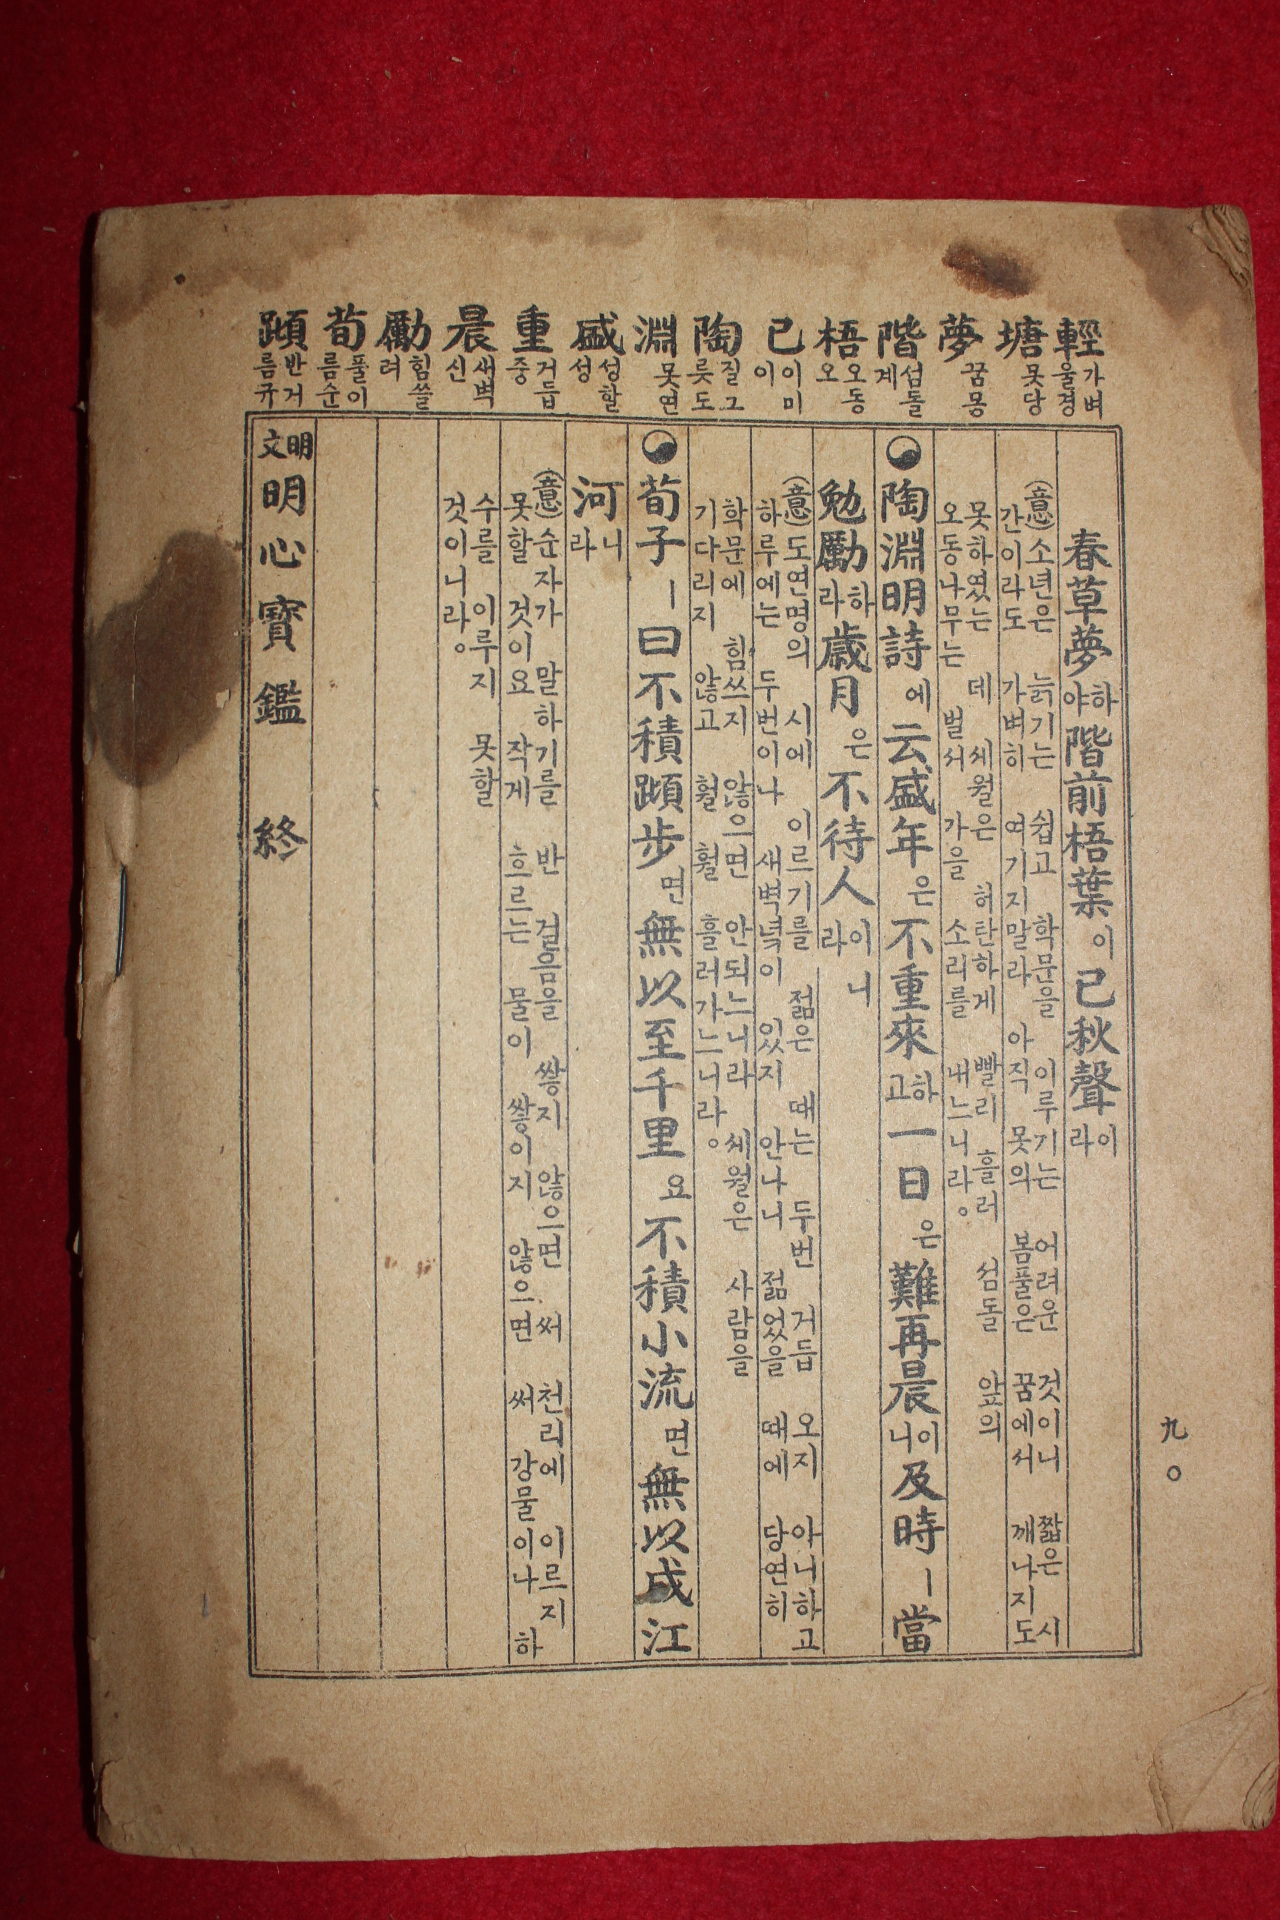 輕 가벼울경
塘 못당
夢 꿈몽
階 섬돌계
梧 오동오
已 이미이
陶 질그릇도
淵 못연
盛 성할성
重 거듭중
晨 새벽신
勵 힘쓸려
荀 풀이름순
蹞 반거름규
春草夢하야階前梧葉이已秋聲이라
(意)소년은 늙기는 쉽고 학문을 이루기는 어려운 것이니 짧은 시
간이라도 가벼히 여기지말라 아직 못의 봄풀은 꿈에서 깨나지도
못하였는 데 세월은 허탄하게 빨리 흘러 섬돌 앞의
오동나무는 벌서 가을 소리를 내느니라。
陶淵明詩에云盛年은不重來하고一日은難再晨이니及時ㅣ當
勉勵하라歲月은不待人이니라
(意)도연명의 시에 이르기를 젊은 때는 두번 거듭 오지 아니하고
하루에는 두번이나 새벽녘이 있지 안나니 젊었을 때에 당연히
학문에 힘쓰지 않으면 안되느니라 세월은 사람을
기다리지 않고 훨훨 흘러가느니라。
荀子ㅣ曰不積蹞步면無以至千里요不積小流면無以成江
河니라
(意)순자가 말하기를 반 걸음을 쌓지 않으면 써 천리에 이르지
못할 것이요 작게 흐르는 물이 쌓이지 않으면 써 강물이나 하
수를 이루지 못할
것이니라。
明文明心寶鑑 終
九〇